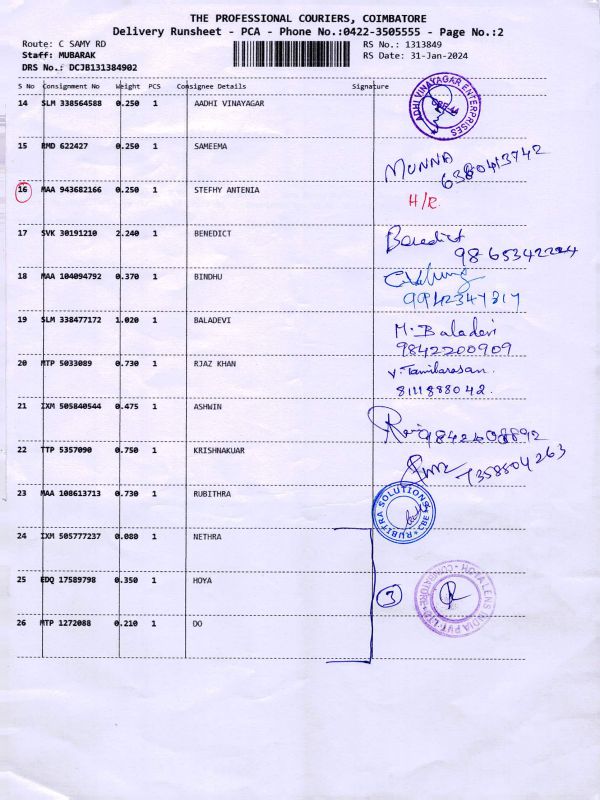 THE PROFESSIONAL COURIERS, COIMBATORE
Delivery Runsheet - PCA - Phone No.:0422-3505555 - Page No.:2
Route: C SAMY RD
RS No.: 1313849
Staff: MUBARAK
RS Date: 31-Jan-2024
DRS No.: DCJB131384902
S No Consignment No Weight PCS Consignee Details Signature
14 SLM 338564588 0.250 1 AADHI VINAYAGAR
ADHI VINAYAGAR ENTERPRISES
15 RMD 622427 0.250 1 SAMEEMA
MUNNA
6380413742
16 MAA 943682166 0.250 1 STEFHY ANTENIA
H/R
17 SVK 30191210 2.240 1 BENEDICT
Benedict
9865342224
18 MAA 104094792 0.370 1 BINDHU
9942347817
19 SLM 338477172 1.020 1 BALADEVI
M. Baladevi
9842200909
20 MTP 5033089 0.730 1 RJAZ KHAN
V. Tamilarasan.
8111888042.
21 IXM 505840544 0.475 1 ASHWIN
22 TTP 5357090 0.750 1 KRISHNAKUAR
7358804263
23 MAA 108613713 0.730 1 RUBITHRA
RUBITRA SOLUTIONS CBE
24 IXM 505777237 0.080 1 NETHRA
25 EDQ 17589798 0.350 1 HOYA
3
HOYA LENS INDIA PVT. LTD. COIMBATORE
26 MTP 1272088 0.210 1 DO